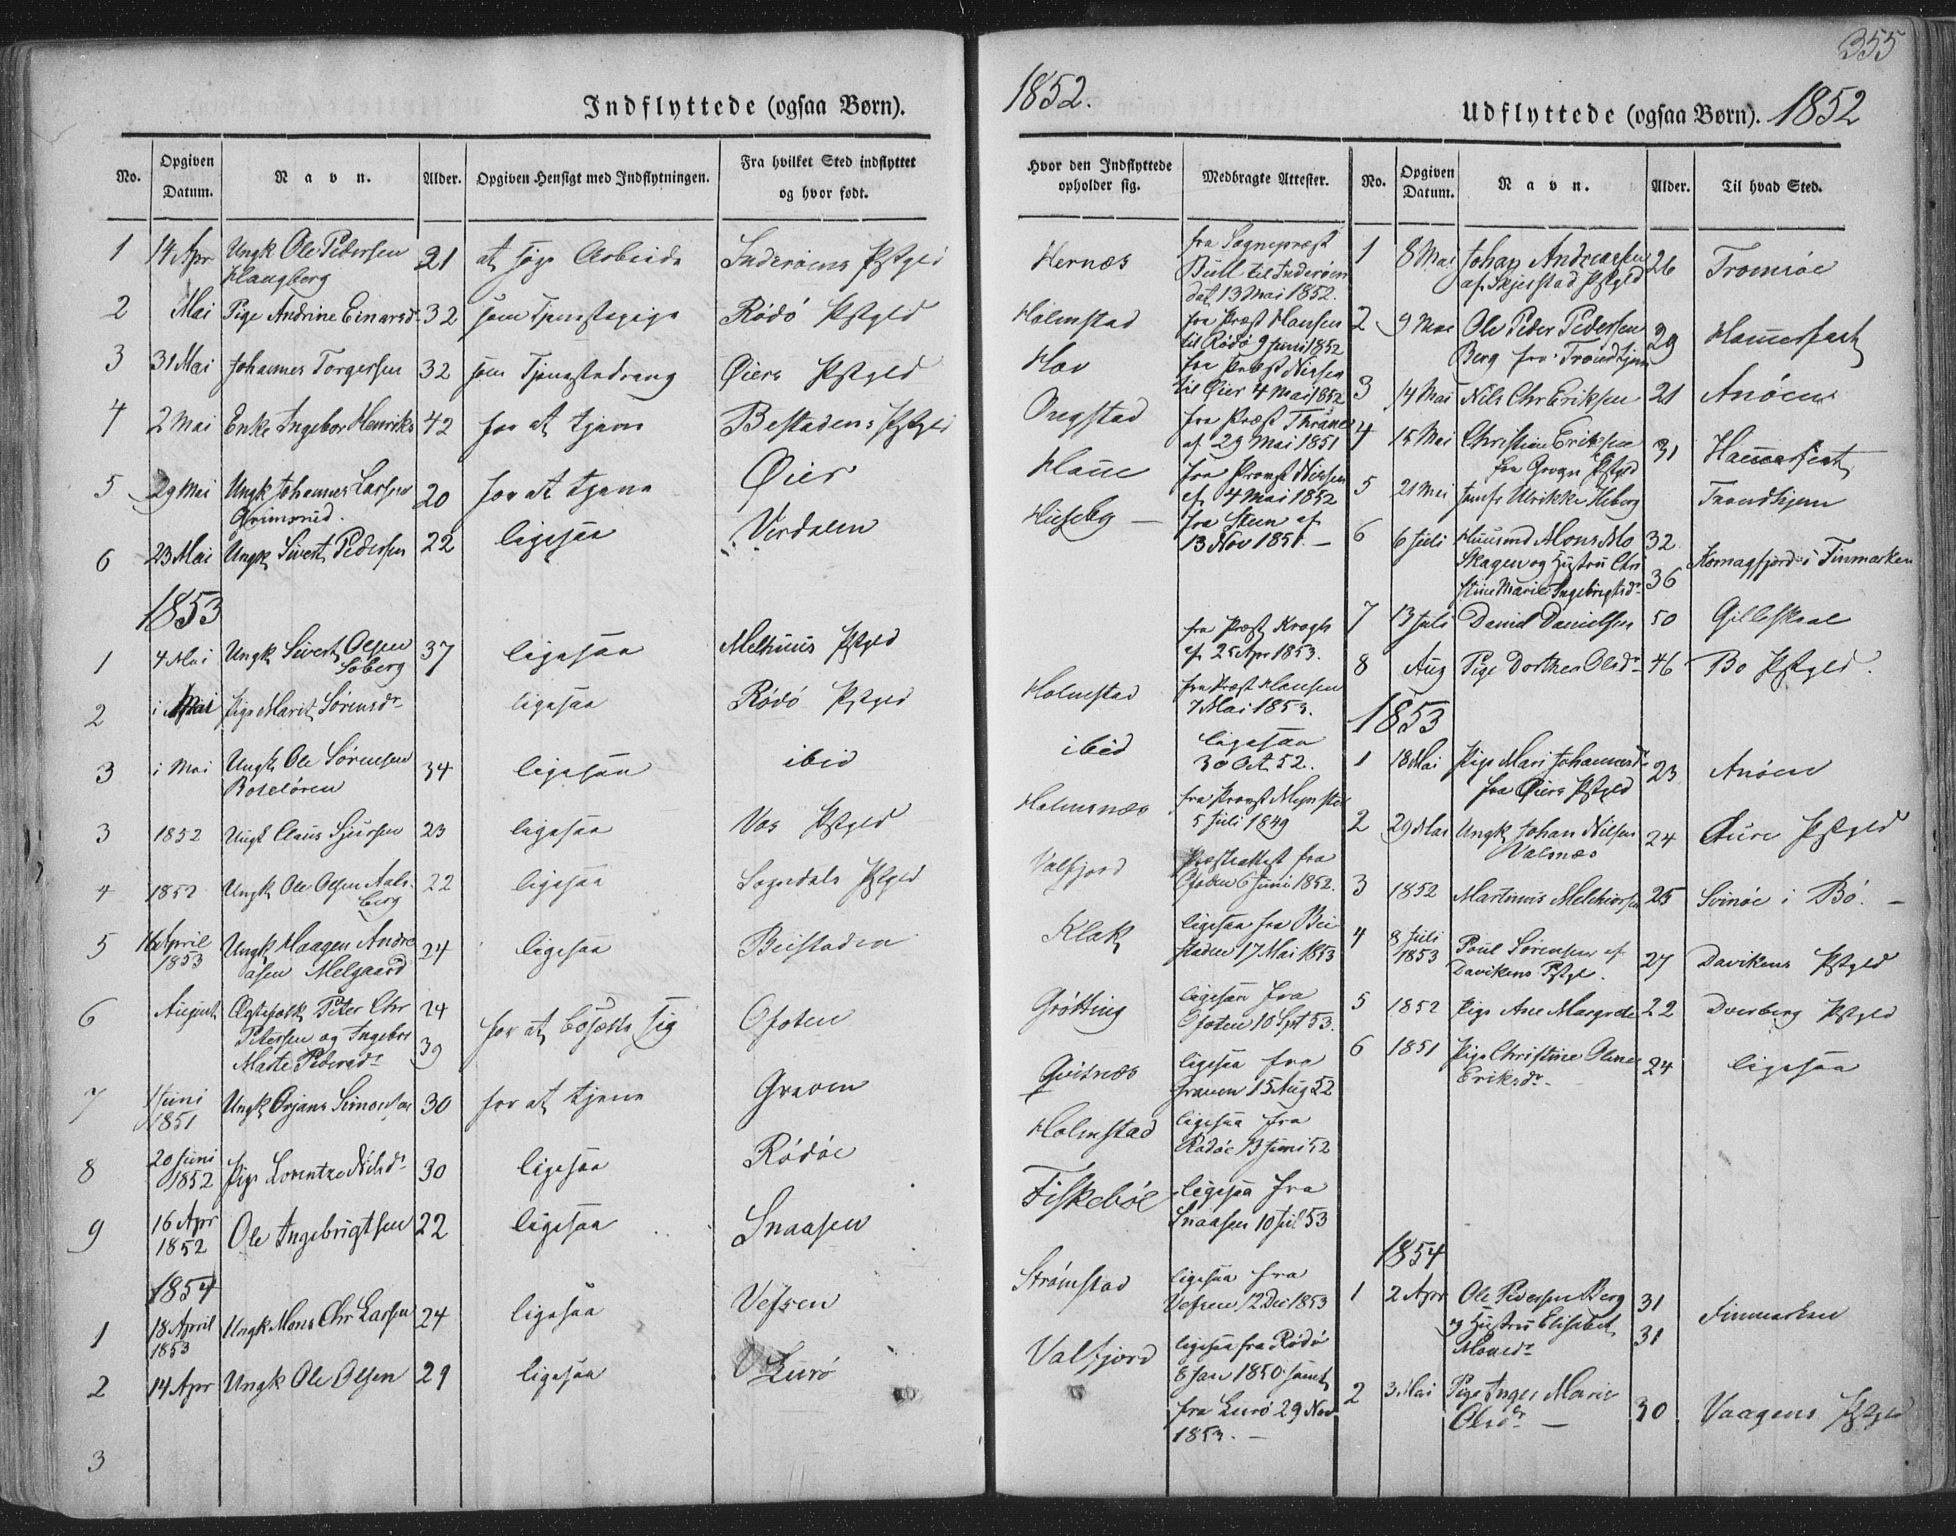 355
Indflyttede (ogsaa Børn).
No. | Opgiven Datum. | Navn. | Alder. | Opgiven Hensigt med Indflytningen. | Fra hvilket Sted indflyttet og hvor født.
1 | 14 Apr | Ungk Ole Pedersen | 21 | at søge Arbeide | Inderøens Pstgld
2 | Mai | Pige Andrine Einarsdr | 32 | som Tjenestepige | Rødø Pstgld
3 | 31 Mai | Johannes Torgersen | 32 | som Tjenestedreng | Øiers Pstgld
4 | 2 Mai | Enke Ingebor Henriks | 42 | for at tjene | Bestadens Pstgld
5 | 29 Mai | Ungk Johannes Larsen | 20 | for at tjene | Øier
Grimsrud.
6 | 23 Mai | Ungk Sivert Pedersen | 22 | ligesaa | Verdalen
1853
1 | 4 Mai | Ungk Sivert Olsen | 37 | ligesaa | Melhuus Pstgld
Soberg
2 | i Mai | Pige Marit Sørensdr | ligesaa | Rødø Pstgld
3 | i Mai | Ungk Ole Sørensen | 34 | ligesaa | ibid
3 | 1852 | Ungk Claus Sjursen | 23 | ligesaa | Vos Pstgld
4 | 1852 | Ungk Ole Olsen Aals- | 22 | ligesaa | Sogndals Pstgld
berg
5 | 16 April 1853 | Ungk Haagen Andre | 24 | ligesaa | Beistaden
asen Melgaard
6 | August | Ægtefolk Peter Chr | 24 | for at bosætte sig | Ofoten
Petersen og Ingebor | 39
Marte Pedersdr
7 | 1 Juni 1851 | Ungk Ørjans Simonsen | 30 | for at tjene | Graven
8 | 20 Juni 1852 | Pige Lorentze Nilsdr | 30 | ligesaa | Rødøe
9 | 16 Apr 1852 | Ole Ingebrigtsen | 22 | ligesaa | Snaasen
1854
1 | 18 April 1853 | Ungk Mons Chr Larsen | 24 | ligesaa | Vefsen
2 | 14 Apr | Ungk Ole Olsen | 29 | ligesaa | Lurø
3
1852.
Hvor den Indflyttede opholder sig. | Medbragte Attester.
Hernæs | fra Sognepræst
Bull til Inderøen
dat 13 Mai 1852.
Holmstad | fra Præst Hansen
til Rødø 9 Juni 1852
Hov | fra Provst Nissen
til Øier 4 Mai 1852
Ongstad | fra Præst Thrane
af 29 Mai 1851
Haue | fra Provst Nissen
af 4 Mai 1852
Huseby — | fra Steen af
13 Nov 1851. —
fra Præst Krogh
af 25 Apr 1853.
Holmstad | fra Præst Hansen
7 Mai 1853.
ibid | ligesaa
30 Oct. 52.
Holmsnæs | fra Provst Mynster
5 Juli 1849
Valfjord | Præsteattest fra
Ofoten 6 Juni 1852.
Klak | ligesaa fra Bei
staden 17 Mai 1853
Grøtting | ligesaa fra
Ofoten 10 Spt 53.
Qvitnæs | ligesaa fra
Graven 15 Aug 52
Holmstad | ligesaa fra
Rødøe 13 Juni 52
Fiskebøe | ligesaa fra
Snaasen 10 Jul 53
Strømstad | ligesaa fra
Vefsen 12 Dec 1853
Valfjord | ligesaa fra Rødø
8 Jan 1850 samt
fra Lurø 29 Nov
1853. —
Udflyttede (ogsaa Børn). 1852
No. | Opgiven Datum. | Navn. | Alder. | Til hvad Sted.
1 | 8 Mai | Johan Andreassen | 26 | Tromsøe
af Skjerstad Pstgld
2 | 9 Mai | Ole Peder Pedersen | 29 | Hammerfest
Berg fra Trondhjem
3 | 14 Mai | Nils Chr Eriksen | 21 | Anøen
4 | 15 Mai | Christine Eriksen | 31 | Hammerfest
5 | 21 Mai | Jomfr Ulrikke Heberg | Trondhjem
6 | 6 Juli | Huusmd Mons Mo | 32 | Komagfjord i Finmarken
Skagen og Hustru Chri | 36
stine Marie Ingebrigtsdr
7 | 13 Juli | Daniel Danielsen | 50 | Gilleskaal
8 | Aug | Pige Dorthea Olsdr | 46 | Bø Pstgld.
1853
1 | 18 Mai | Pige Mari Johannesdr | 23 | Anøen
fra Øiers Pstgld
2 | 29 Mai | Ungk Johan Nilsen | 24 | Aure Pstgld
Valnæs
3 | 1852 | Martinus Melchiorsen | 25 | Svinøe i Bø. —
4 | 8 Juli 1853 | Poul Sørensen af | 27 | Davikens Pstgld
Davikens Pstgl.
5 | 1852 | Pige Ane Margrete | 22 | Dverberg Pstgld
6 | 1851 | Pige Christine Oline | 24 | ligesaa
Eriksdr
1854
1 | 2 Apr | Ole Pedersen Berg | 31 | Finmarken
og Hustru Elisabet | 31
Monsdr
2 | 3 Mai | Pige Inger Marie | 30 | Vaagens Pstgld
Olsdr —